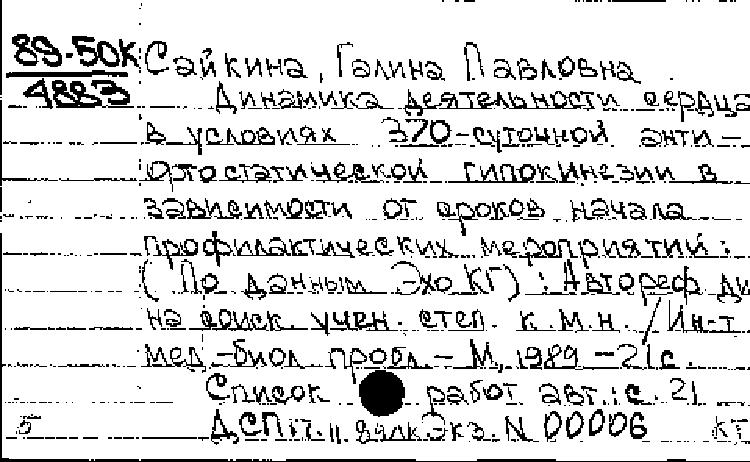 89-50К Сайкина, Галина Павловна
4883 Динамика деятельности сердца
в условиях 370-суточной анти-
ортостатической гипокинезии в
зависимости от сроков начала
профилактических мероприятий:
(По данным ЭхоКГ) : Автореф ди
на соиск. учен. степ. к.м.н. / Ин-т
мед.-биол. пробл. - М, 1989 - 21с.
Список работ авт.: с. 21
5 ДСП Экз. N 00006 КТ